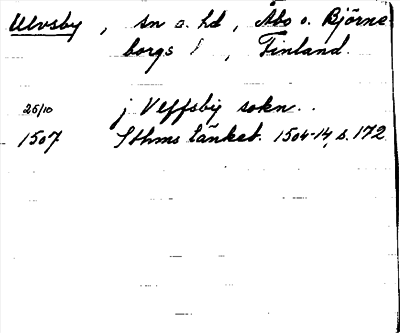 Ulvsby, sn o. hd, Åbo o. Björne
borgs l, Finland.
25/10 j Veffsby sokn..
1507 Sthms tänkeb. 1504-14, s. 172